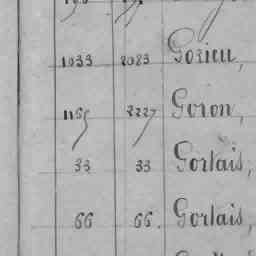 1033 2083 Gorieu,
1155 2227 Goron,
33 33 Gortais,
66 66. Gortais,